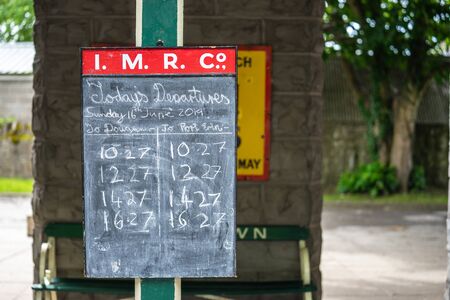 I. M. R. Co.
Today's Departures
Sunday 16th June 2019
To Douglas - To Port Erin -
10:27 10:27
12:27 12:27
14:27 14:27
16:27 16:27
CH
S
MAY
WN